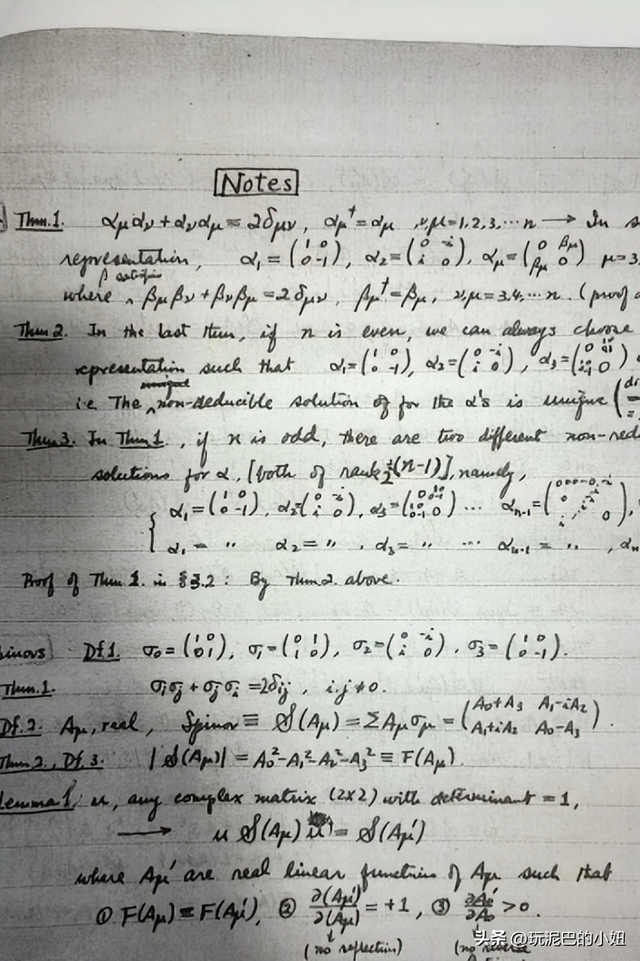 Notes
Thm.1. αμαν + αναμ = 2δμν, αμ† = αμ, ν,μ=1,2,3,…n → In
representation, α1 = (1 0; 0 -1), α2 = (0 -i; i 0), αμ = (0 βμ; βμ 0) μ=3,
β satisfies
where βμβν + βνβμ = 2δμν, βμ† = βμ, ν,μ=3,4,…n. (proof
Thm2. In the last thm, if n is even, we can always choose
representation such that α1=(1 0; 0 -1), α2=(0 -i; i 0), α3=
i.e. The non-deducible solution of for the α's is unique
Thm3. In Thm1, if n is odd, there are two different non-red
solutions for α, [both of rank ½(n-1)], namely,
α1 = (1 0; 0 -1), α2=(0 -i; i 0), α3= … αn-1=
α1 = " α2 = ", α3 = " … αn-1 = ",
Proof of Thm1. in §3.2: By Thm2. above.
Df.1. σ0 = (1 0; 0 1), σ1 = (0 1; 1 0), σ2 = (0 -i; i 0), σ3 = (1 0; 0 -1).
Thm.1. σiσj + σjσi = 2δij, i,j≠0.
Df.2. Aμ, real, Spinor ≡ S(Aμ) = ΣAμσμ = (A0+A3 A1-iA2; A1+iA2 A0-A3).
Thm2, Df.3. |S(Aμ)| = A0²-A1²-A2²-A3² ≡ F(Aμ).
Lemma1, u, any complex matrix (2x2) with determinant = 1,
→ u S(Aμ) = S(Aμ')
where Aμ' are real linear functions of Aμ such that
① F(Aμ) = F(Aμ'), ② ∂(Aμ')/∂(Aμ) = +1, ③ ∂A0'/∂A0 > 0.
(no reflection) (no reverse
头条 @玩泥巴的小妞